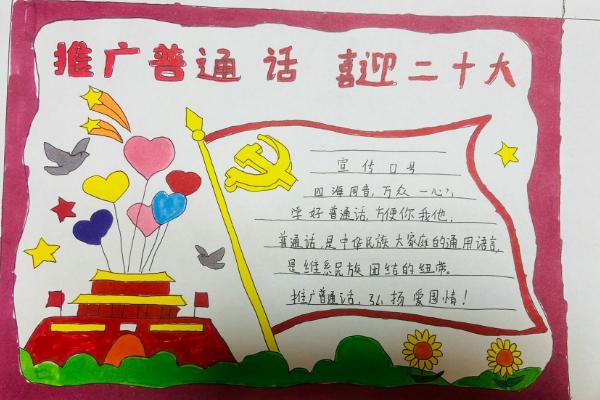 推广普通话 喜迎二十大
宣传口号
四海同音,万众一心,
学好普通话,方便你我他,
普通话,是中华民族大家庭的通用语言,
是维系民族团结的纽带。
推广普通话,弘扬爱国情!